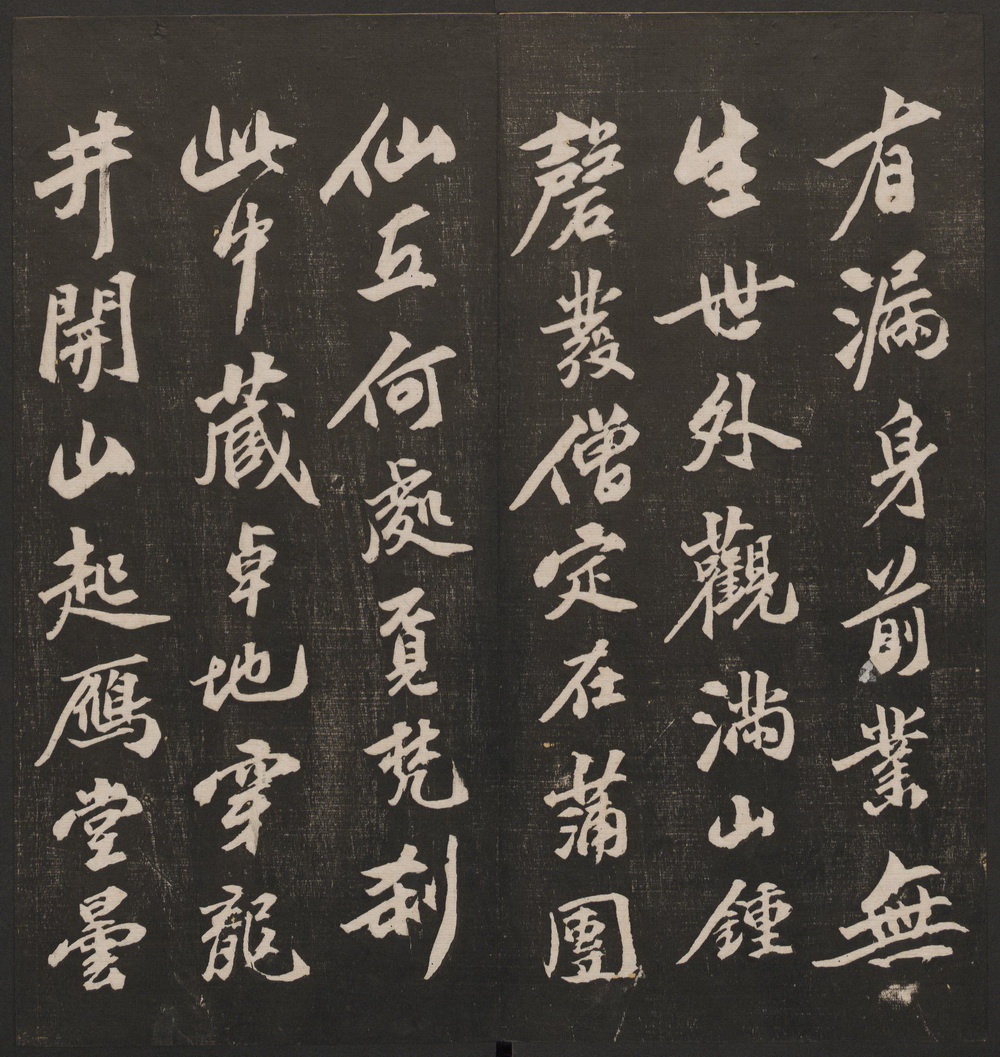 有漏身前業無
生世外觀滿山鍾
磬發僧定在蒲團
仙丘何處覓梵剎
此中藏卓地穿龍
井開山起鴈堂曇